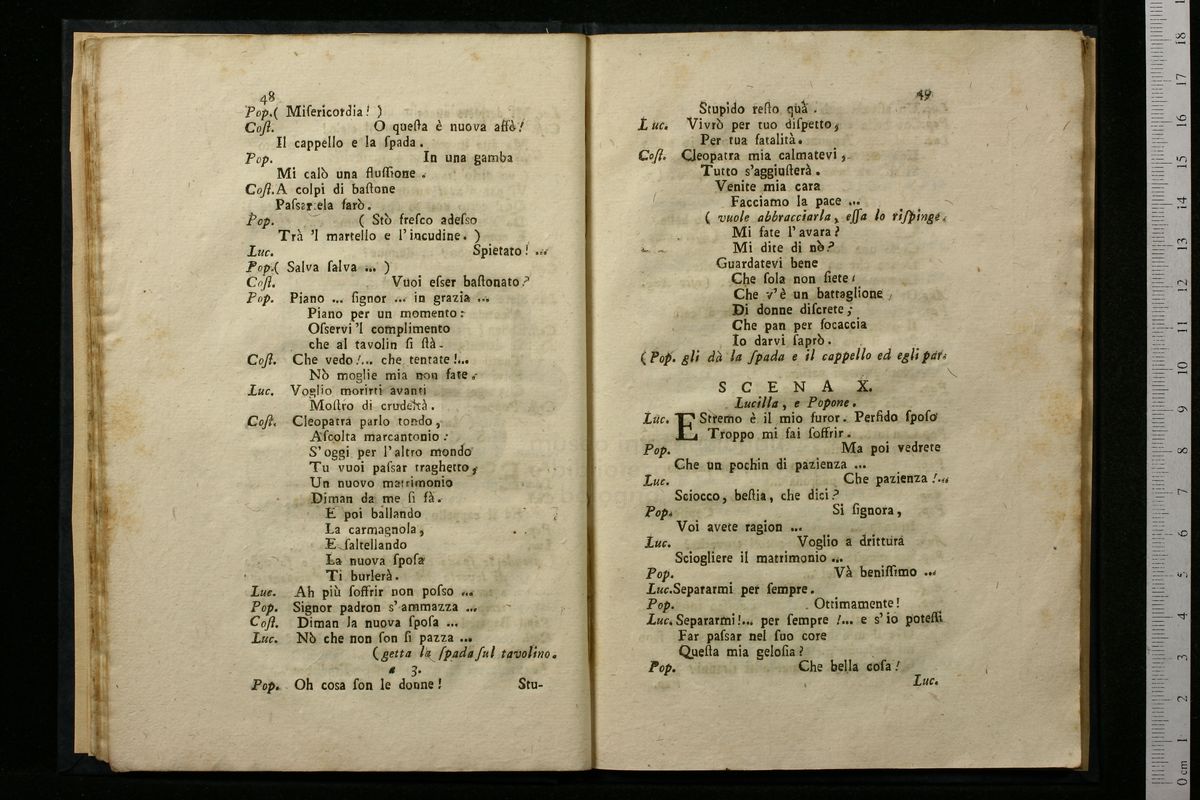 48
Pop.( Miſericordia! )
Coſt. O queſta è nuova affè!
Il cappello e la ſpada.
Pop. In una gamba
Mi calò una fluſſione.
Coſt. A colpi di baſtone
Paſsarela farò.
Pop. ( Stò freſco adeſso
Trà 'l martello e l'incudine. )
Luc. Spietato! ...
Pop.( Salva ſalva ... )
Coſt. Vuoi eſser baſtonato?
Pop. Piano ... ſignor ... in grazia ...
Piano per un momento:
Oſservi 'l complimento
che al tavolin ſi ſtà.
Coſt. Che vedo!... che tentate!...
Nò moglie mia non fate.
Luc. Voglio morirti avanti
Moſtro di crudeltà.
Coſt. Cleopatra parlo tondo,
Aſcolta marcantonio:
S'oggi per l'altro mondo
Tu vuoi paſsar traghetto,
Un nuovo matrimonio
Diman da me ſi fà.
E poi ballando
La carmagnola,
E ſaltellando
La nuova ſpoſa
Ti burlerà.
Luc. Ah più ſoffrir non poſso ...
Pop. Signor padron s'ammazza ...
Coſt. Diman la nuova ſpoſa ...
Luc. Nò che non ſon ſi pazza ...
(getta la ſpada ſul tavolino.
a 3.
Pop. Oh cosa ſon le donne! Stu-
49
Stupido reſto quà.
Luc. Vivrò per tuo diſpetto,
Per tua fatalità.
Coſt. Cleopatra mia calmatevi,
Tutto s'aggiuſterà.
Venite mia cara
Facciamo la pace ...
( vuole abbracciarla, eſſa lo riſpinge.
Mi fate l'avara?
Mi dite di nò?
Guardatevi bene
Che ſola non ſiete;
Che v'è un battaglione
Di donne diſcrete;
Che pan per focaccia
Io darvi ſaprò.
(Pop. gli dà la ſpada e il cappello ed egli par.
SCENA X.
Lucilla, e Popone.
Luc. EStremo è il mio furor. Perfido ſpoſo
Troppo mi fai ſoffrir.
Pop. Ma poi vedrete
Che un pochin di pazienza ...
Luc. Che pazienza!...
Sciocco, beſtia, che dici?
Pop. Si ſignora,
Voi avete ragion ...
Luc. Voglio a drittura
Sciogliere il matrimonio ...
Pop. Và beniſſimo ...
Luc. Separarmi per ſempre.
Pop. Ottimamente!
Luc. Separarmi!... per ſempre!... e s'io poteſſi
Far paſsar nel ſuo core
Queſta mia geloſia?
Pop. Che bella coſa!
Luc.
0 cm 1 2 3 4 5 6 7 8 9 10 11 12 13 14 15 16 17 18